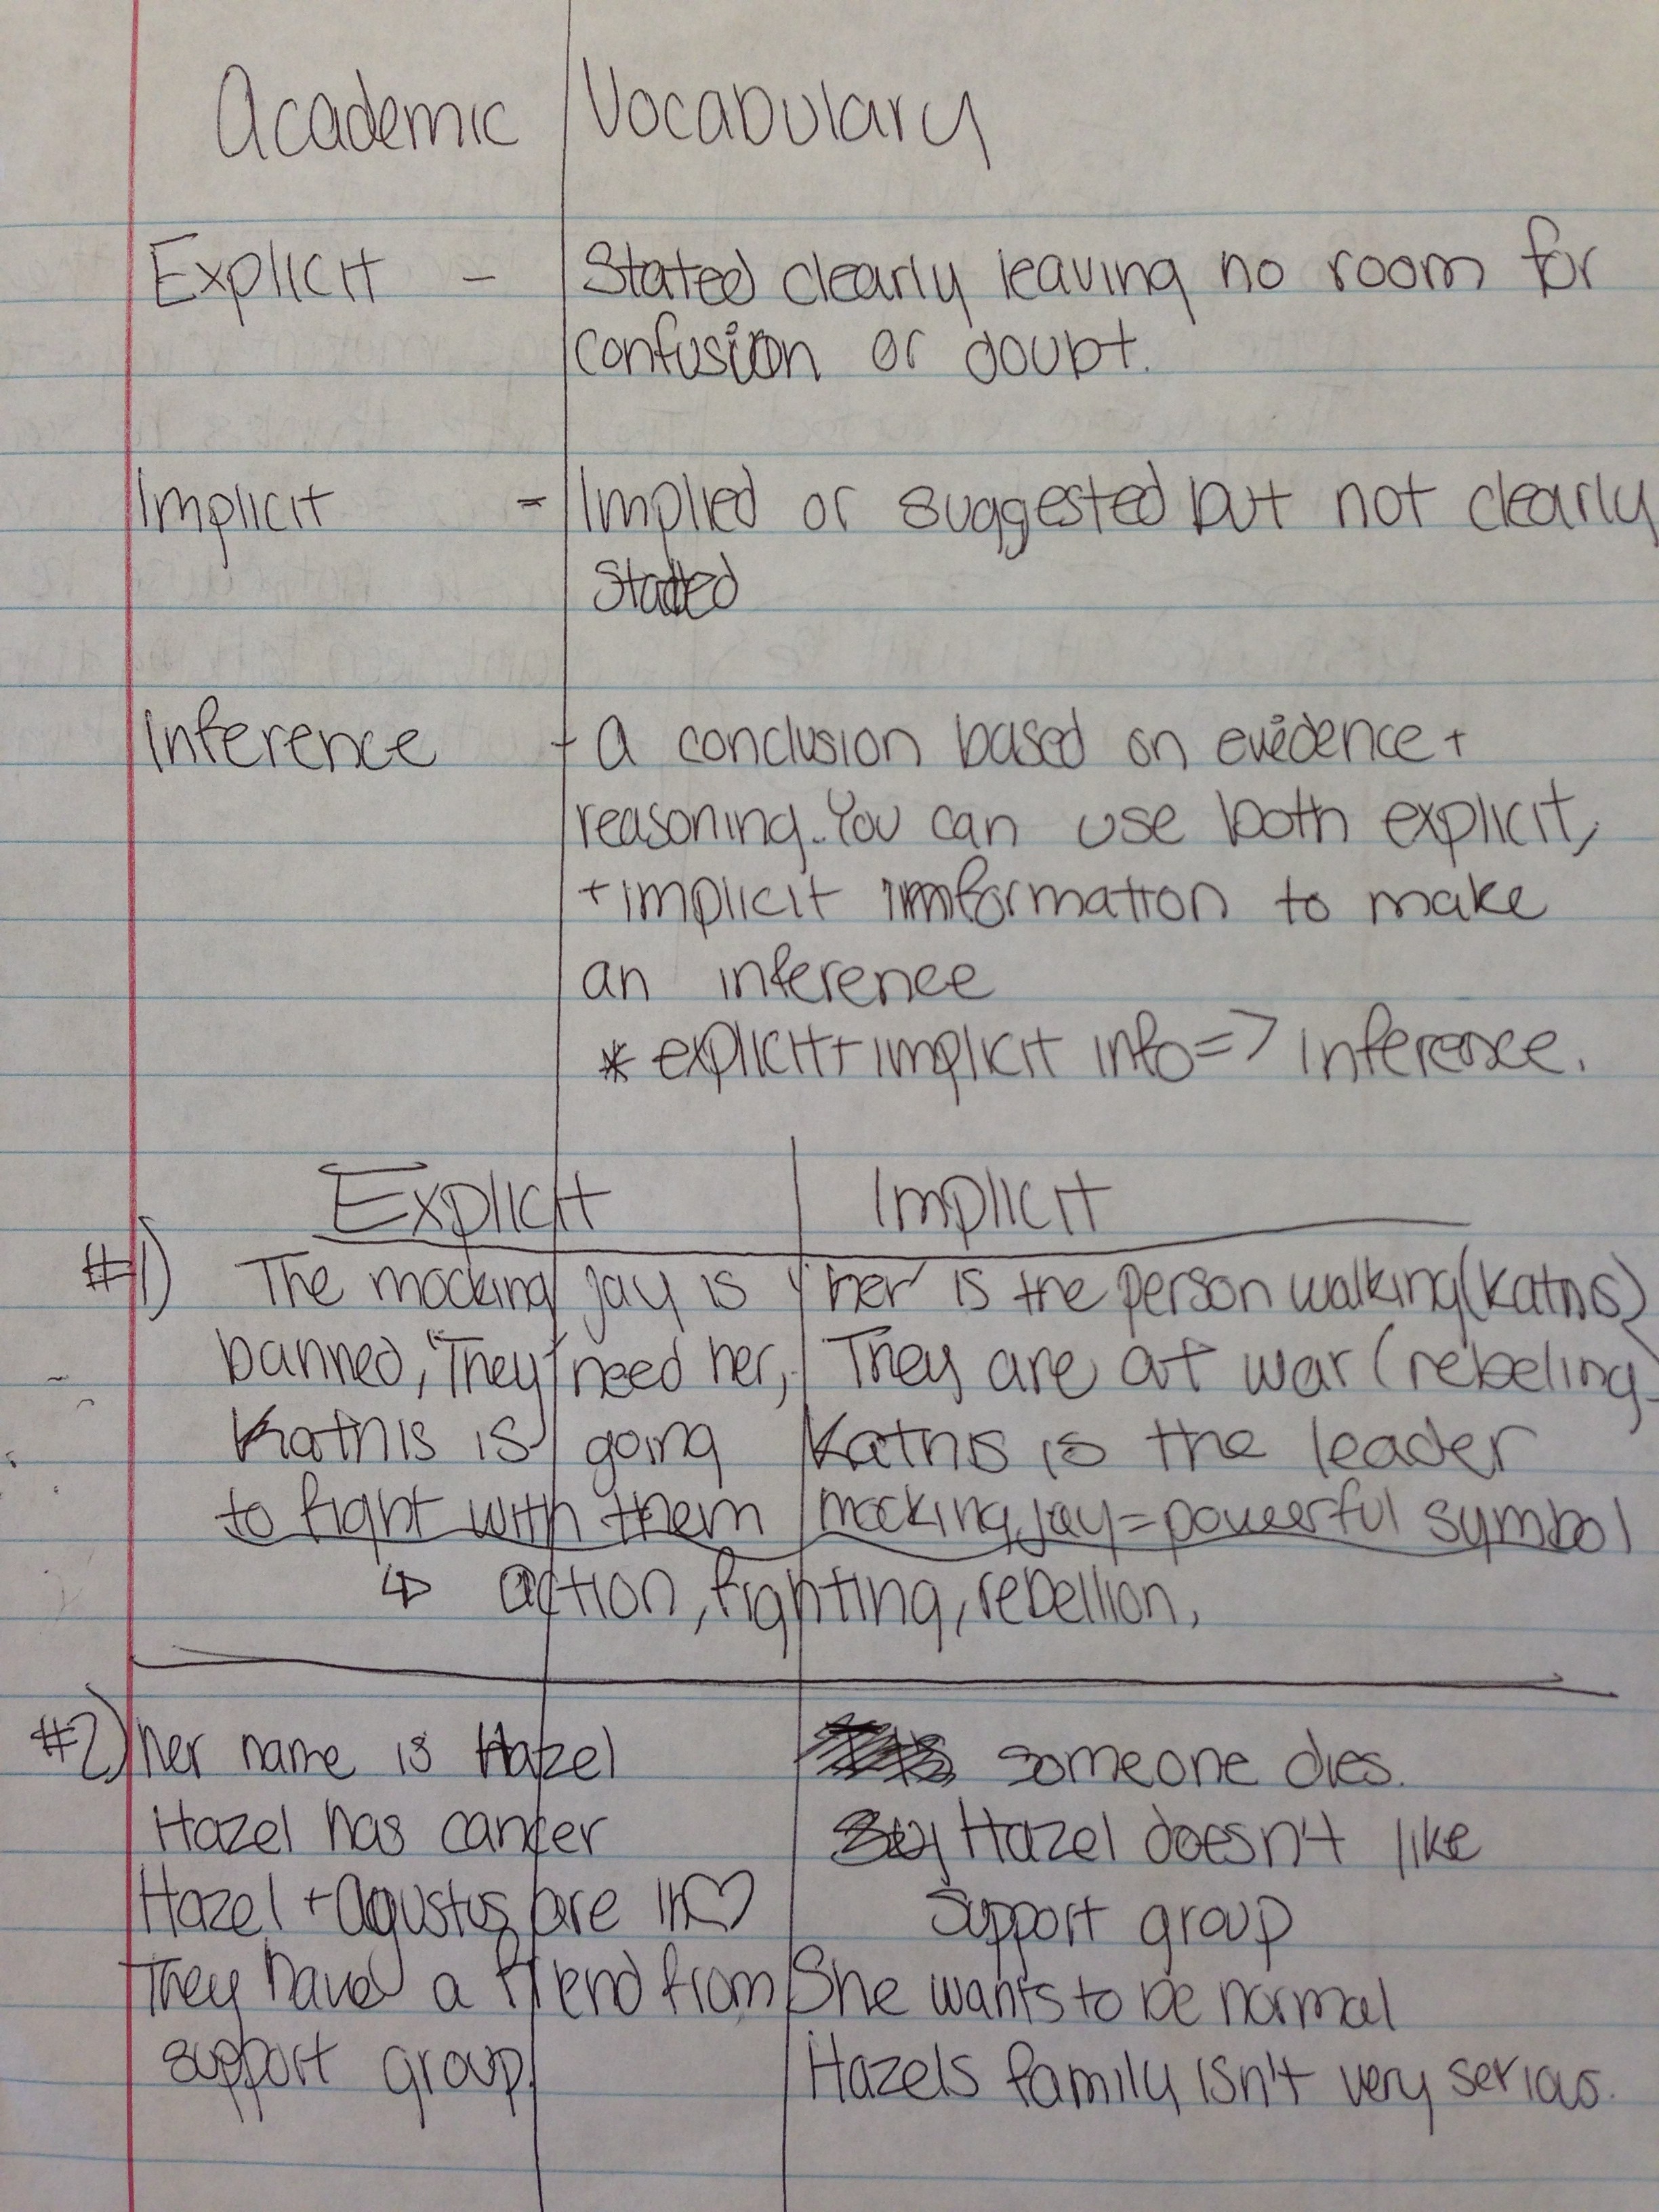 Academic Vocabulary
Explicit - Stated clearly leaving no room for
confusion or doubt.
Implicit - Implied or suggested but not clearly
stated
Inference - a conclusion based on evidence +
reasoning. You can use both explicit
+ implicit information to make
an inference
* explicit + implicit info => inference.
Explicit Implicit
#1) The mocking jay is "her" is the person walking (katnis)
banned, "They need her," They are at war (rebeling)
Katnis is going Katnis is the leader
to fight with them mocking jay = powerful symbol
↳ action, fighting, rebellion,
#2) her name is Hazel someone dies.
Hazel has cancer Hazel doesn't like
Hazel + agustus are in ♡ support group
They have a friend from she wants to be normal
support group. Hazels family isn't very serious.